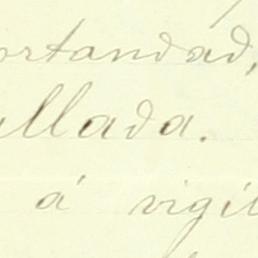 ortandad,
ullada.
á vigil